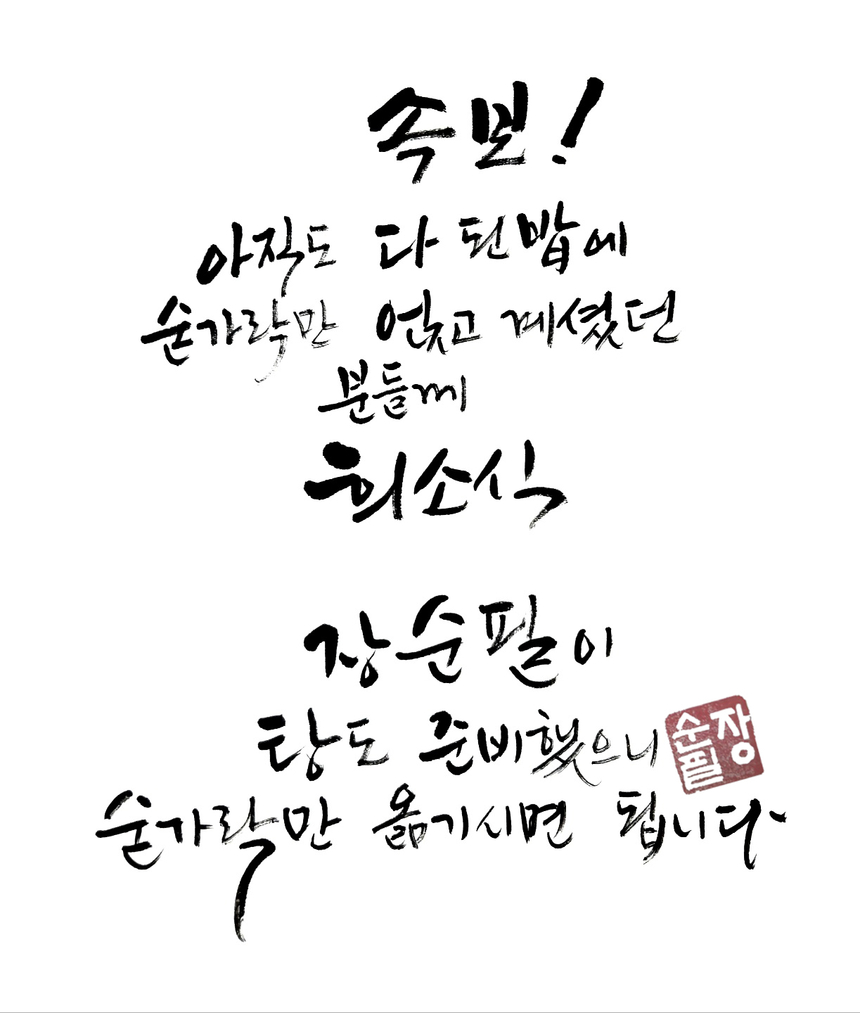 속보!
아직도 다 된밥에
숟가락만 얹고 계셨던
분들께
희소식
장순필이
탕도 준비했으니
순장
필
숟가락만 옮기시면 됩니다